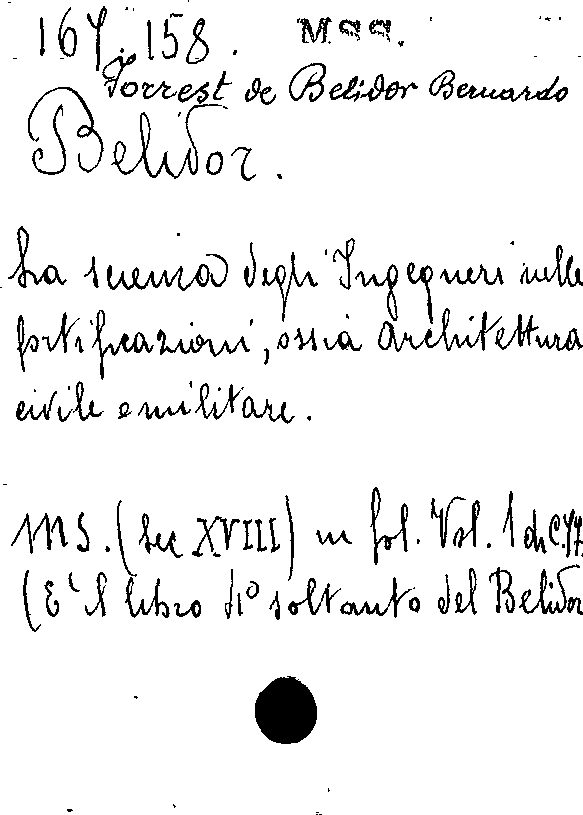 167.158. MSS.
Forrest de Belidor Bernardo
Belidor.
La scienza degli Ingegneri nelle
fortificazioni, ossia architettura
civile e militare.
MS. (Sec XVIII) in fol. Vol. 1 di C.
(È il libro 4º soltanto del Belidor